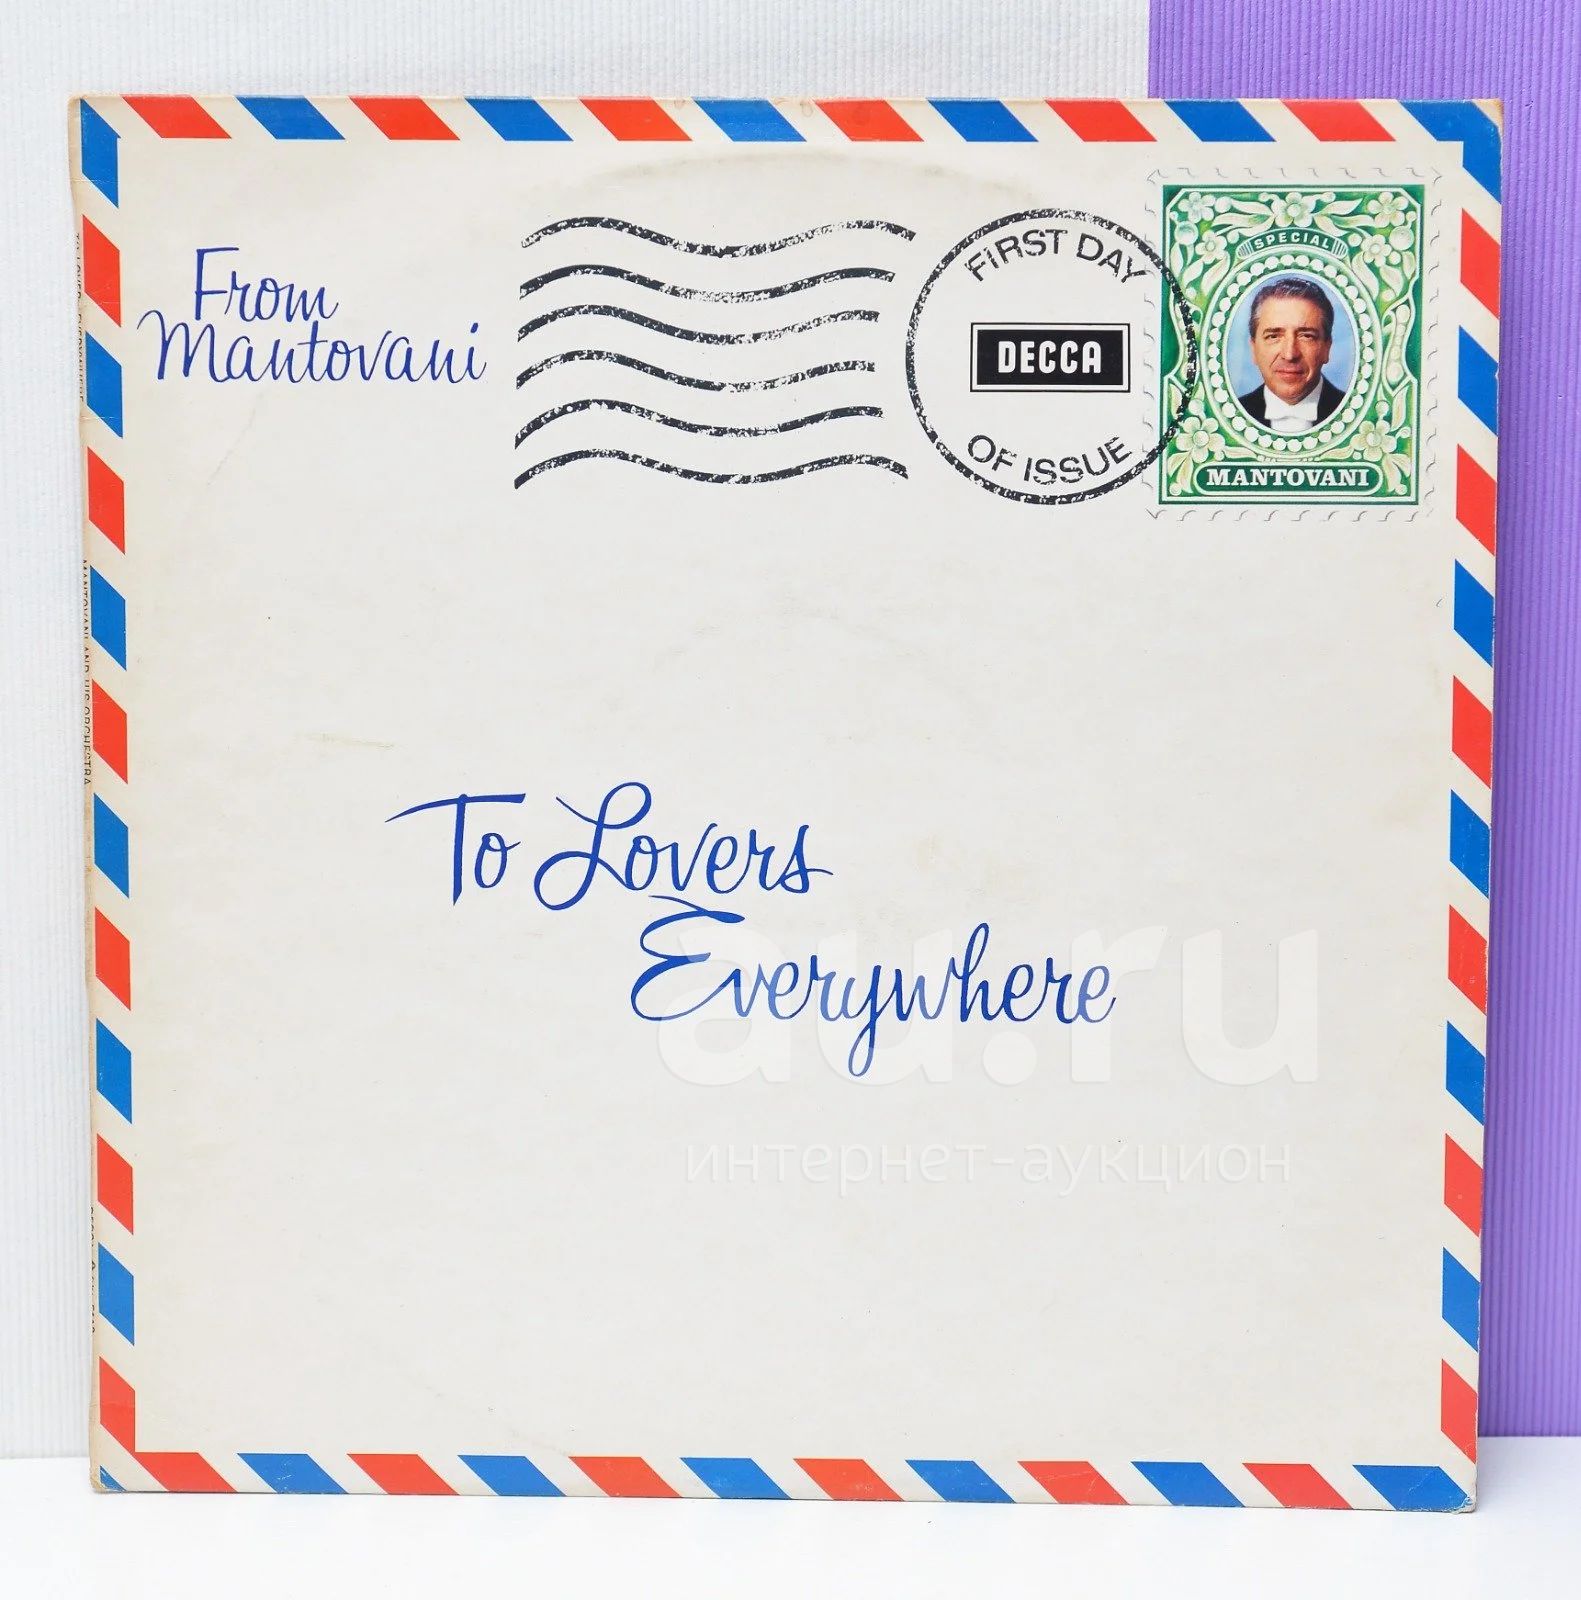 From
Mantovani
FIRST DAY
DECCA
OF ISSUE
SPECIAL
MANTOVANI
To Lovers
Everywhere
au.ru
интернет-аукцион
MANTOVANI AND HIS ORCHESTRA